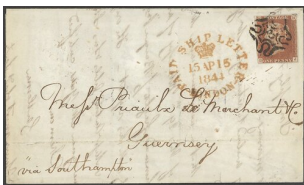 PAID SHIP LETTER
15 AP 15
1844
LONDON
Messrs Priaulx Le Marchant & Co
Guernsey
via Southampton